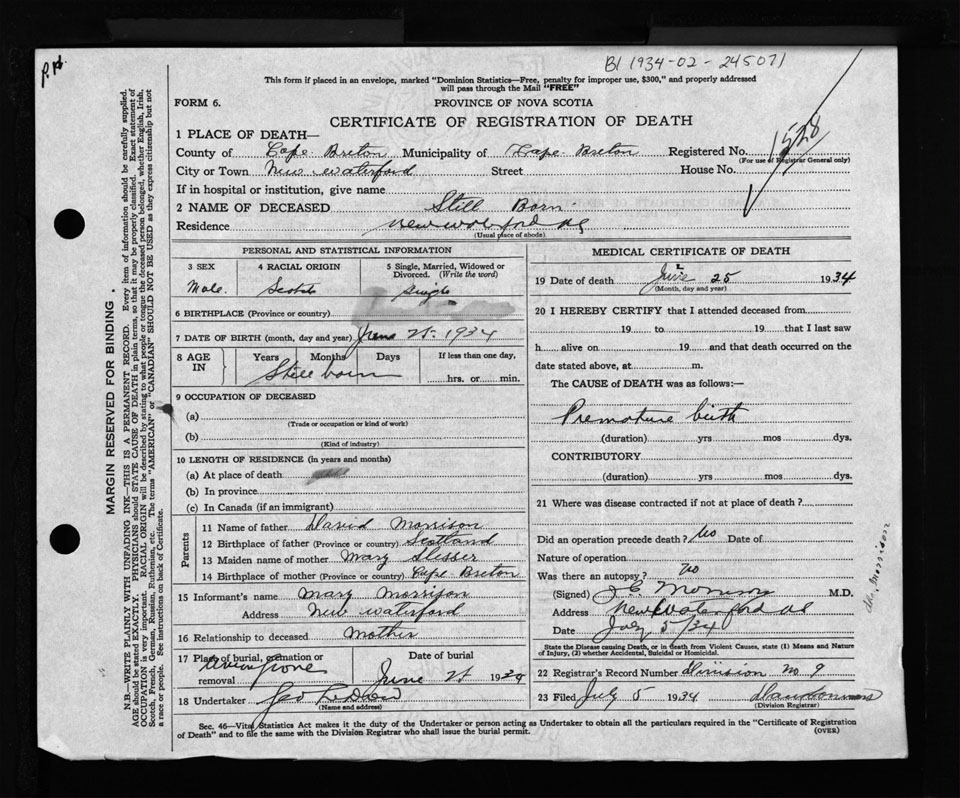 P.H.
B1 1934-02-245071
This form if placed in an envelope, marked "Dominion Statistics—Free, penalty for improper use, $300," and properly addressed
will pass through the Mail "FREE"
FORM 6.
PROVINCE OF NOVA SCOTIA
CERTIFICATE OF REGISTRATION OF DEATH
1528
1 PLACE OF DEATH—
County of Cape Breton Municipality of Cape Breton Registered No.
(For use of Registrar General only)
City or Town New Waterford Street House No.
If in hospital or institution, give name
2 NAME OF DECEASED Still Born
Residence New Waterford NS
(Usual place of abode)
PERSONAL AND STATISTICAL INFORMATION
3 SEX 4 RACIAL ORIGIN 5 Single, Married, Widowed or
Divorced. (Write the word)
Male. Scotch Single
6 BIRTHPLACE (Province or country)
7 DATE OF BIRTH (month, day and year) June 25 1934
8 AGE IN Years Months Days If less than one day,
Still born hrs. or min.
9 OCCUPATION OF DECEASED
(a)
(Trade or occupation or kind of work)
(b)
(Kind of industry)
10 LENGTH OF RESIDENCE (in years and months)
(a) At place of death
(b) In province
(c) In Canada (if an immigrant)
Parents
11 Name of father David Morrison
12 Birthplace of father (Province or country) Scotland
13 Maiden name of mother Mary Slesser
14 Birthplace of mother (Province or country) Cape Breton
15 Informant's name Mary Morrison
Address New Waterford
16 Relationship to deceased Mother
17 Place of burial, cremation or Date of burial
removal June 25 1934
18 Undertaker Geo
(Name and address)
MEDICAL CERTIFICATE OF DEATH
19 Date of death June 25 1934
(Month, day and year)
20 I HEREBY CERTIFY that I attended deceased from
19 to 19 that I last saw
h alive on 19 and that death occurred on the
date stated above, at m.
The CAUSE of DEATH was as follows:—
Premature birth
(duration) yrs mos dys.
CONTRIBUTORY
(duration) yrs mos dys.
21 Where was disease contracted if not at place of death?
Did an operation precede death? No Date of
Nature of operation
Was there an autopsy? No
(Signed) J.C. Morrison M.D.
Address New Waterford NS
Date July 5/34
State the Disease causing Death, or in death from Violent Causes, state (1) Means and Nature
of Injury, (2) whether Accidental, Suicidal or Homicidal.
22 Registrar's Record Number Division No 9
23 Filed July 5 1934
(Division Registrar)
Sec. 46—Vital Statistics Act makes it the duty of the Undertaker or person acting as Undertaker to obtain all the particulars required in the "Certificate of Registration
of Death" and to file the same with the Division Registrar who shall issue the burial permit. (OVER)
MARGIN RESERVED FOR BINDING.
N.B.—WRITE PLAINLY WITH UNFADING INK—THIS IS A PERMANENT RECORD. Every item of information should be carefully supplied.
AGE should be stated EXACTLY. PHYSICIANS should STATE CAUSE OF DEATH in plain terms, so that it may be properly classified. Exact statement of
OCCUPATION is very important. RACIAL ORIGIN will be described by stating to what people or tongue the deceased person belonged, whether English, Irish,
Scotch, French, German, Russian, Ruthenian, etc. The terms "AMERICAN" or "CANADIAN" SHOULD NOT BE USED as they express citizenship but not
a race or people. See instructions on back of Certificate.
Morrison